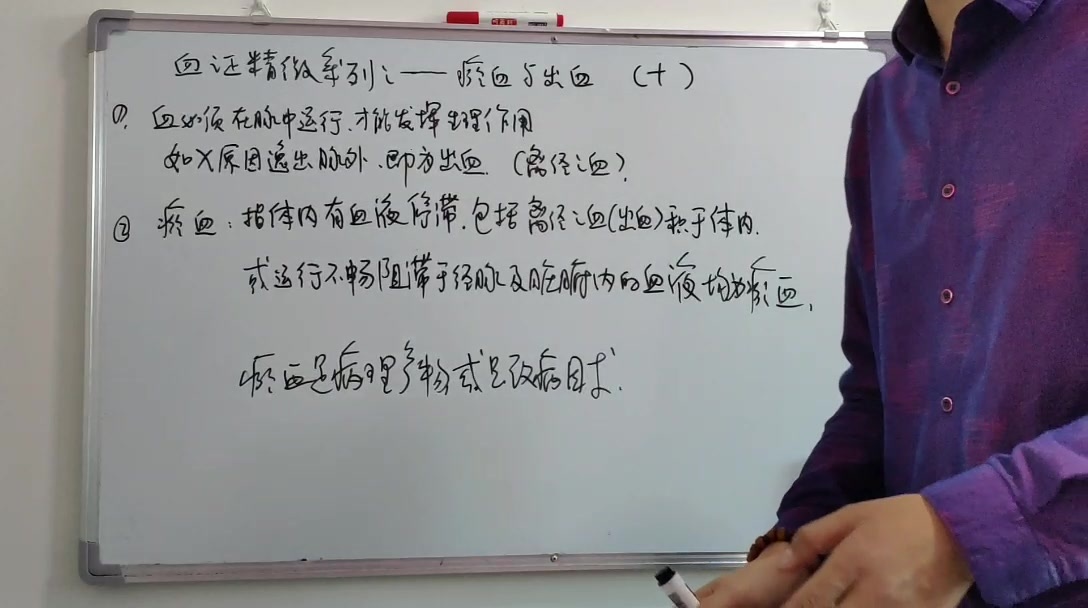 血证精微系列之——瘀血与出血 (十)
①. 血必须在脉中运行、才能发挥生理作用
如X原因逸出脉外、即为出血. (离经之血).
② 瘀血：指体内有血液停滞. 包括离经之血(出血)积于体内.
或运行不畅阻滞于经脉及脏腑内的血液均为瘀血.
瘀血是病理产物或是致病因术.